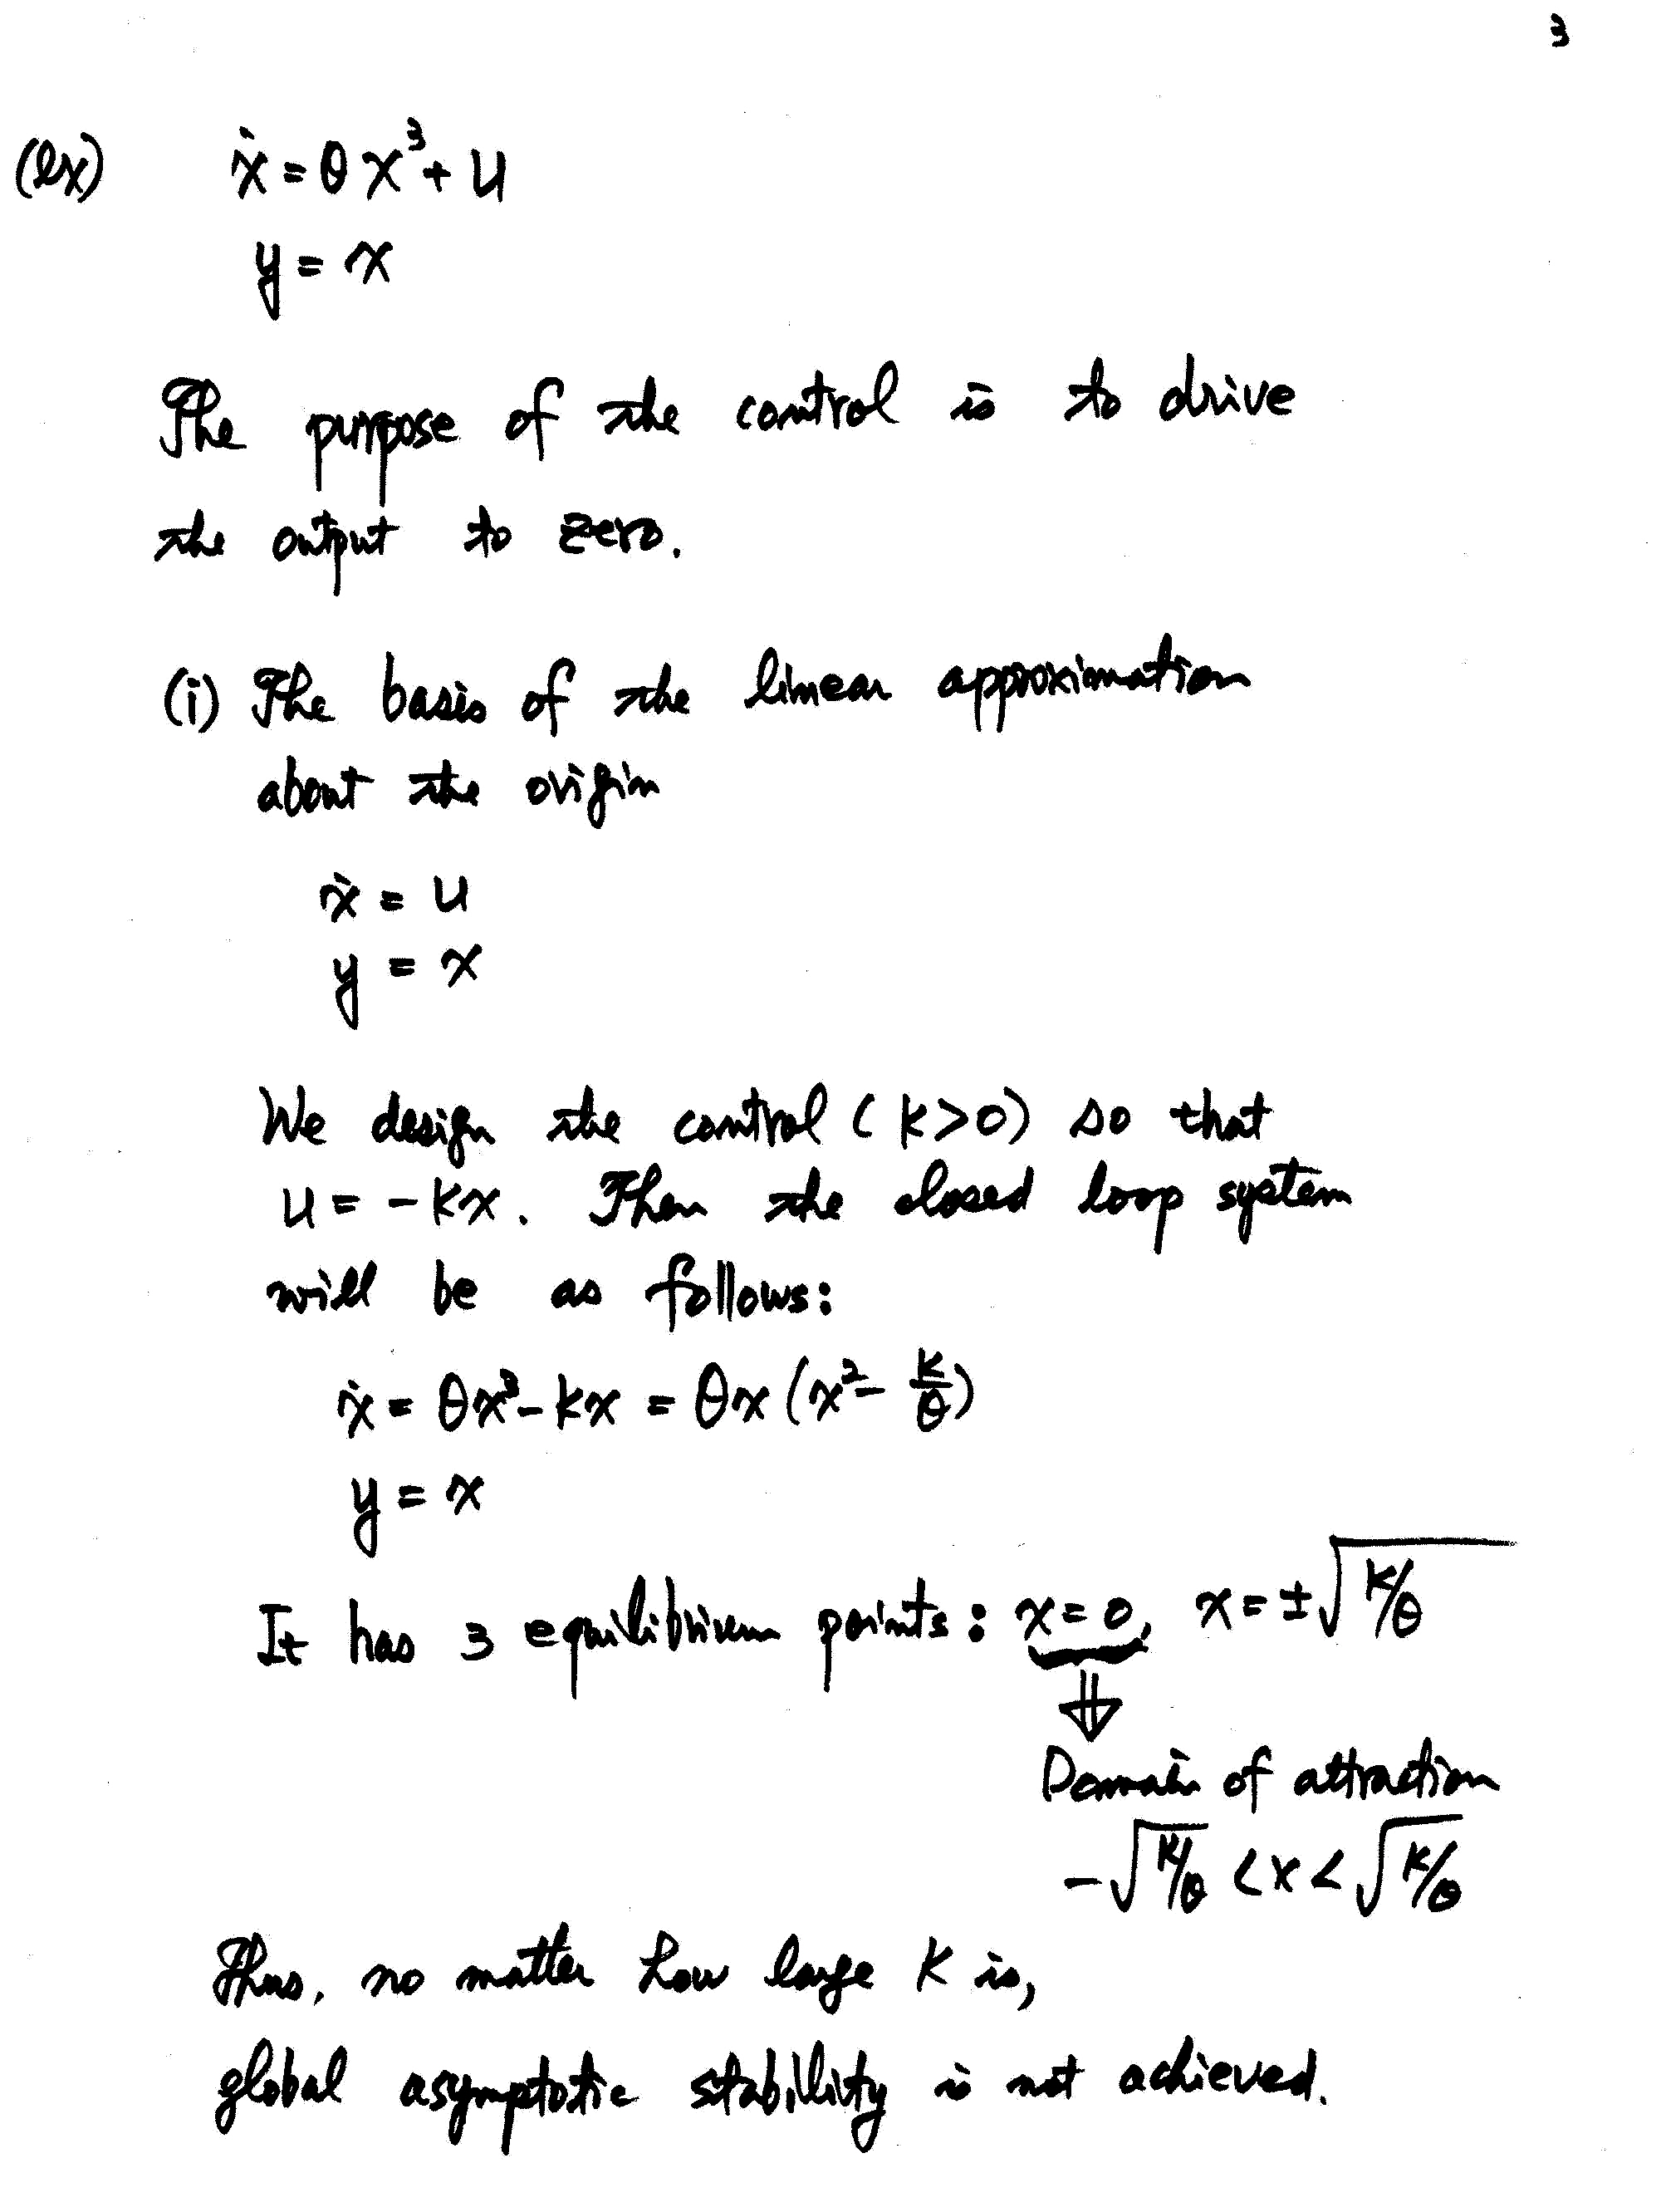 3
(ex) ẋ = θx³ + u
y = x
The purpose of the control is to drive
the output to zero.
(i) The basis of the linear approximation
about the origin
ẋ = u
y = x
We design the control (k>0) so that
u = -kx. Then the closed loop system
will be as follows:
ẋ = θx³ - kx = θx(x² - k/θ)
y = x
It has 3 equilibrium points: x=0, x=±√(k/θ)
⇓
Domain of attraction
-√(k/θ) < x < √(k/θ)
Thus, no matter how large k is,
global asymptotic stability is not achieved.